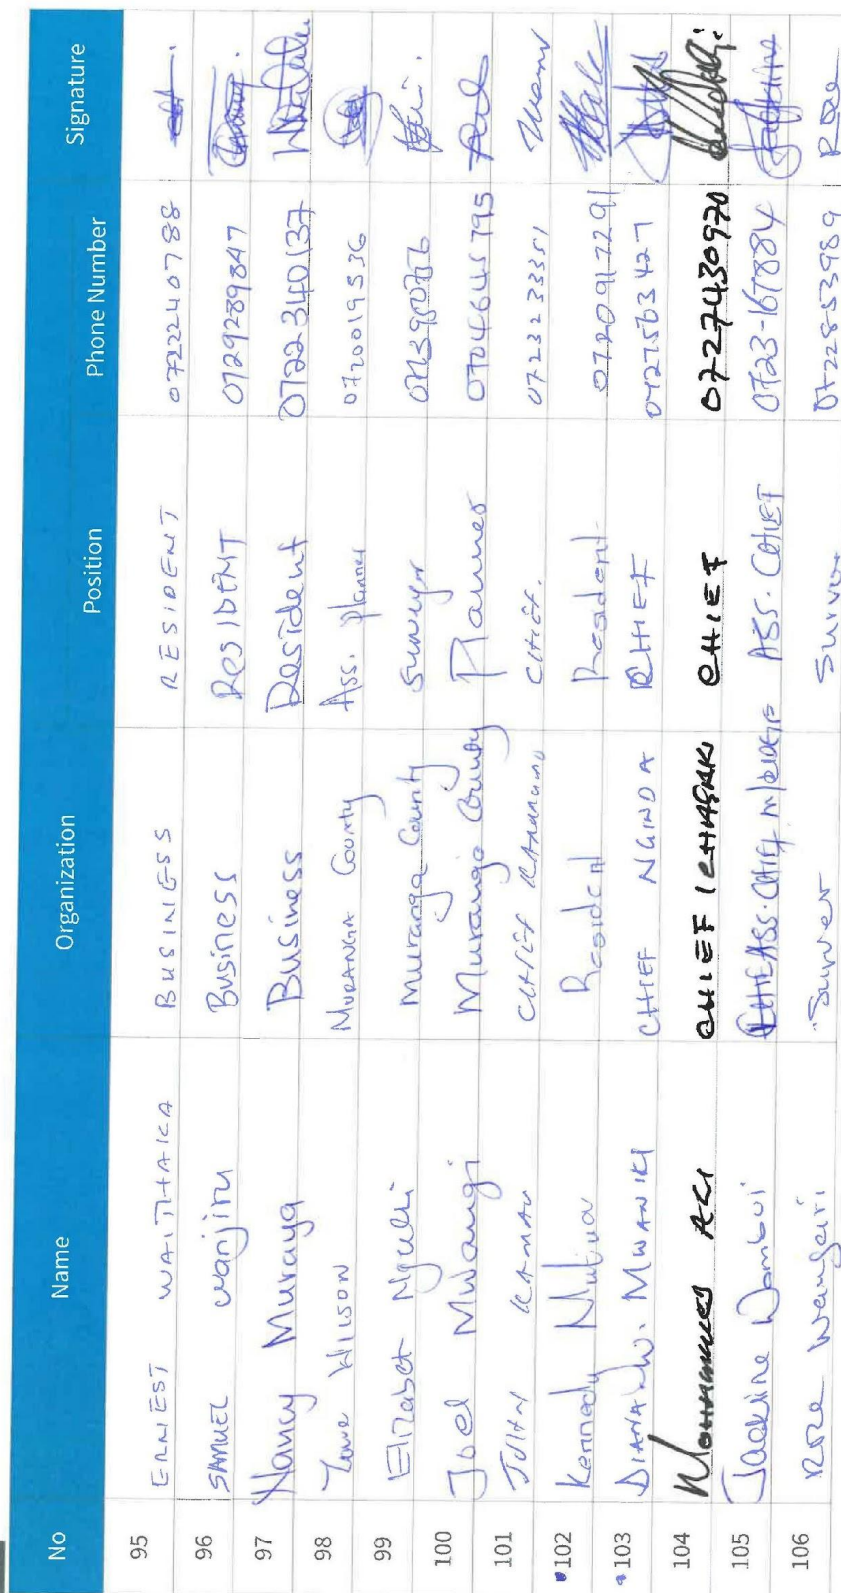 No Name Organization Position Phone Number Signature
95 ERNEST WAITHAKA BUSINESS RESIDENT 0722240788
96 SAMUEL wanjiru Business RESIDENT 0729289847
97 Nancy Muraya Business Resident 0722340137
98 WILSON MURANGA County Ass. planner 0720019536
99 Elizabet Muranga County Surveyor
100 Joel Mwangi Muranga County Planner 0704645795
101 KAMAU CHIEF CHIEF. 0723233351
102 Kennedy Mutua Resident Resident 0720917291
103 DIANA W. MWANIKI CHIEF NGINDA CHIEF 0727563427
104 ALI CHIEF ICHAGAKI CHIEF 0727430970
105 Jackline Wambui ASS. CHIEF ASS. CHIEF 0723-167884
106 Rose Wangeiri Survey Survey 0722853989 Rose